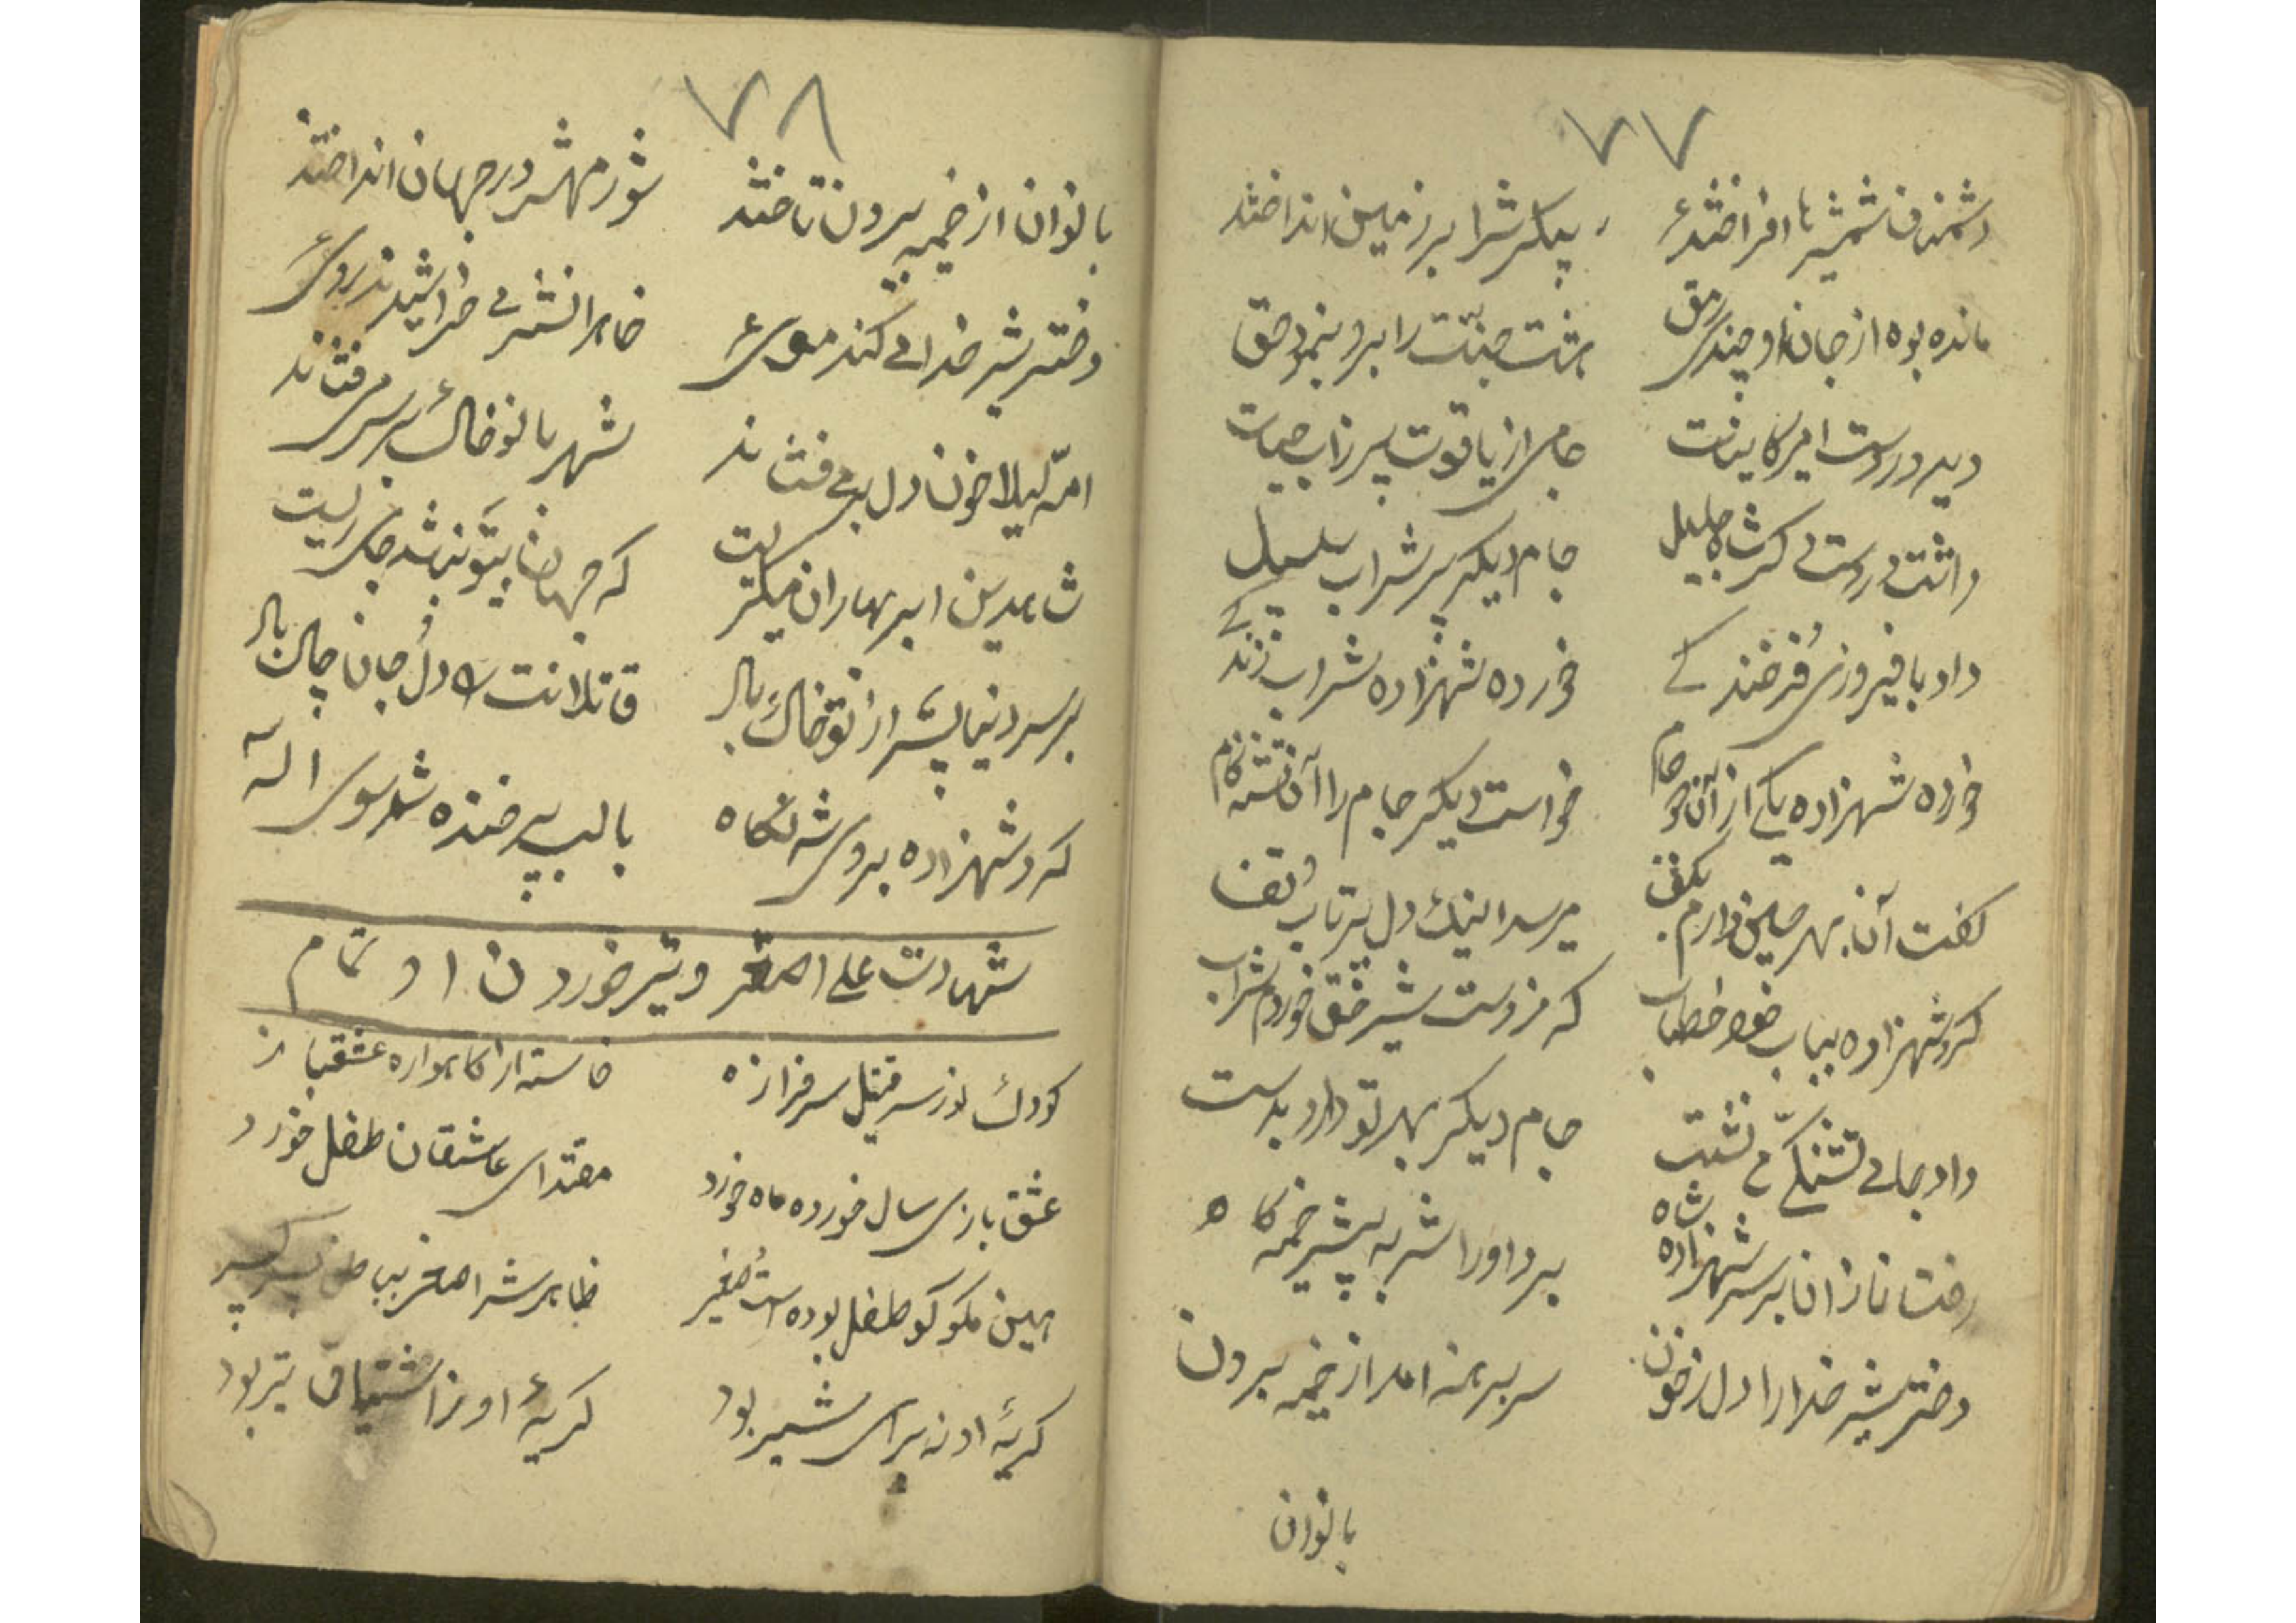 ۷۷
دشمنان شمشیرها افراختند
پیکرش را بر زمین انداختند
مانده بود از جان او چندی رمق
هشت جنت را برو بنمود حق
دید در دست امیر کاینات
جامی از یاقوت پر زاب حیات
داشت در دست دگر شاه جلیل
جام دیگر پر شراب سلسبیل
داد با فیروزی و فرخندگی
خورده شهزاده شراب زندگی
خورده شهزاده یکی از آن دو جام
خواست دیگر جام را آن تشنه کام
گفت آن بهر حسین دارم بکف
میرسد اینک دل پرتاب و تف
کرد شهزاده بباب خود خطاب
که ز دست شیر حق خوردم شراب
داد جامی تشنگی نشست
جام دیگر بهر تو دارد بدست
رفت نازان بر سر شهزاده شاه
برد او را شه به پیش خیمه گاه
دختر شیر خدا را دل ز خون
سر برهنه امد از خیمه برون
بانوان
۷۸
بانوان از خیمه بیرون تاختند
شور محشر در جهان انداختند
دختر شیر خدا می کند موی
خاهرانش می خراشیدند روی
ام لیلا خون دل می فشاند
شهربانو خاک بر سر می فشاند
شاه دین ابر بهاران میگریست
که جهان بیتو نباشد جای زیست
بر سر دنیا پس از تو خاک باد
قاتلانت را دل و جان چاک باد
کرد شهزاده بروی شه نگاه
با لب پر خنده شد سوی اله
شهادت علی اصغر و تیر خوردن او تمام
کودک نورس قتیل سرفراز
خاست از گاهواره عشقباز
عشق بازی سال خورده ماه خورد
مقتدای عاشقان طفل خورد
هین مگو کو طفل بوده است و صغیر
ظاهرش اصغر
گریهٔ او نه برای شیر بود
گریهٔ او ز اشتیاق تیر بود